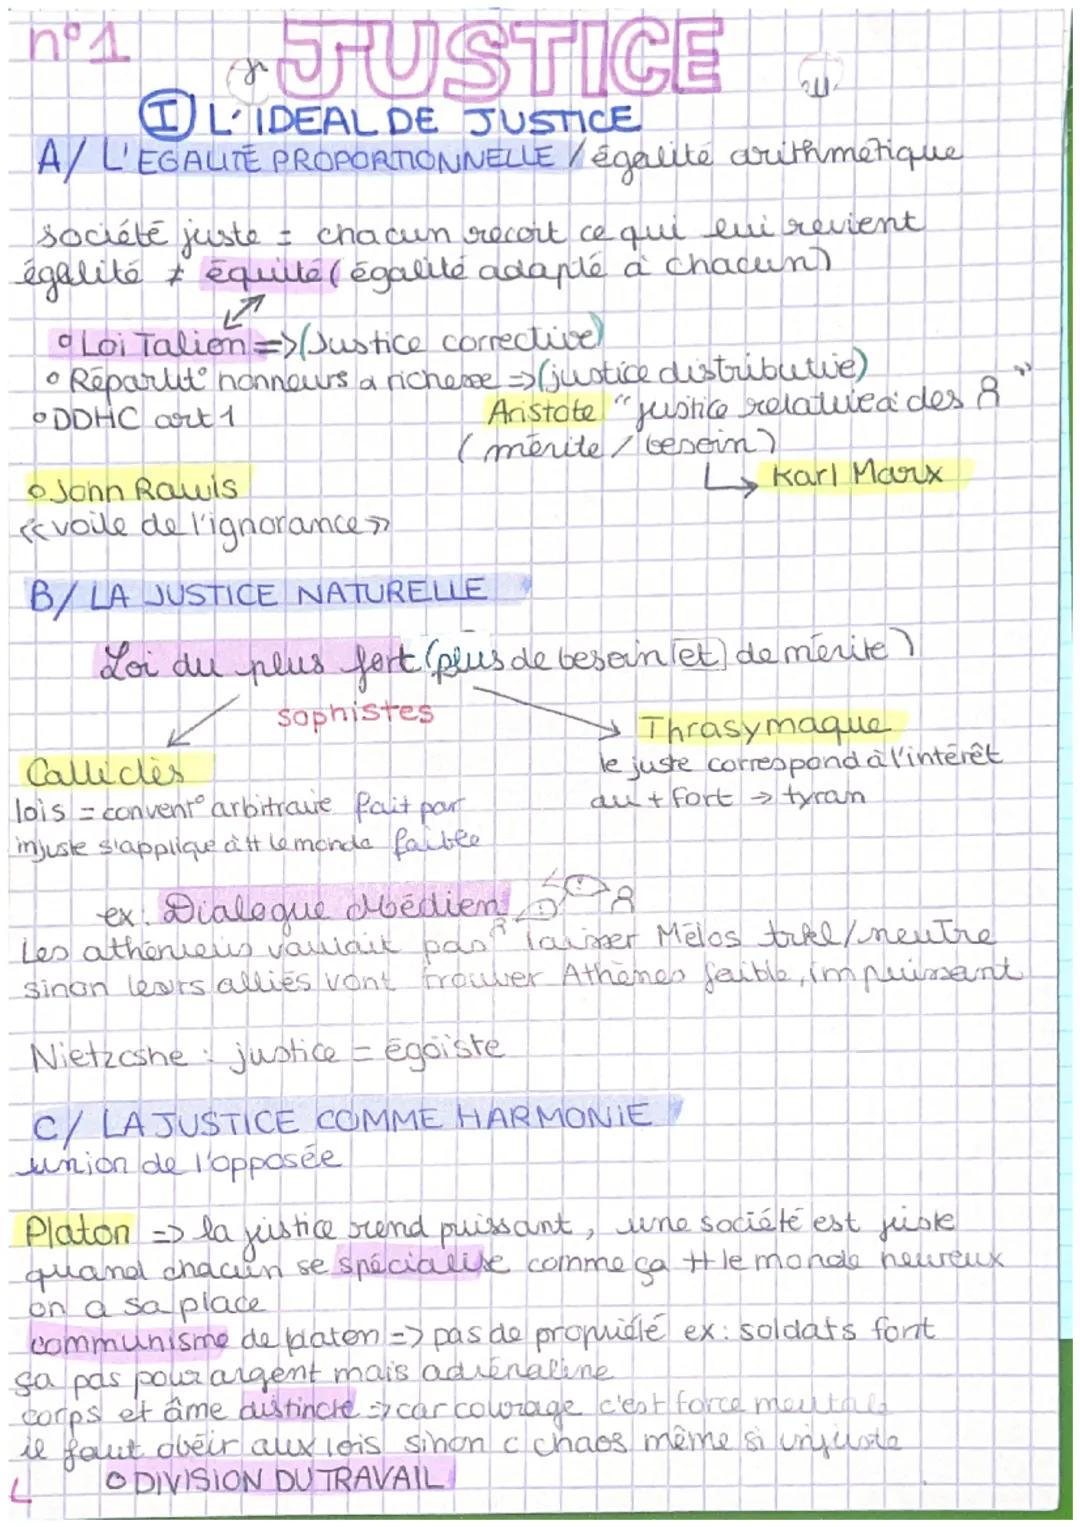 n°1 JUSTICE
I L'IDEAL DE JUSTICE
A/ L'EGALITÉ PROPORTIONNELLE / égalité arithmétique
société juste = chacun reçoit ce qui lui revient
égalité ≠ équité (égalité adapté à chacun)
° Loi Talion => (Justice corrective)
° Répartit° honneurs a richesse => (justice distributive)
° DDHC art 1
Aristote "justice relative à des
"
(mérite / besoin)
Karl Marx
° John Rawls
«voile de l'ignorance»
B/ LA JUSTICE NATURELLE
Loi du plus fort (plus de besoin et de mérite)
sophistes
Thrasymaque
le juste correspond à l'intérêt
du + fort → tyran
Calliclès
lois = convent° arbitraire fait par
injuste s'applique à tt le monde faible
ex: Dialogue Médien
Les athéniens vaulait pas laisser Mélos trkl/neutre
sinon leurs alliés vont trouver Athènes faible, impuissant
Nietzcshe : justice = égoïste
C/ LA JUSTICE COMME HARMONIE
union de l'opposée
Platon => la justice rend puissant, une société est juste
quand chacun se spécialise comme ça tt le monde heureux
on a sa place
communisme de platon => pas de propriété ex: soldats font
ça pas pour argent mais adrénaline
corps et âme distincte => car courage c'est force mentale
il faut obéir aux lois sinon c chaos même si injuste
° DIVISION DU TRAVAIL